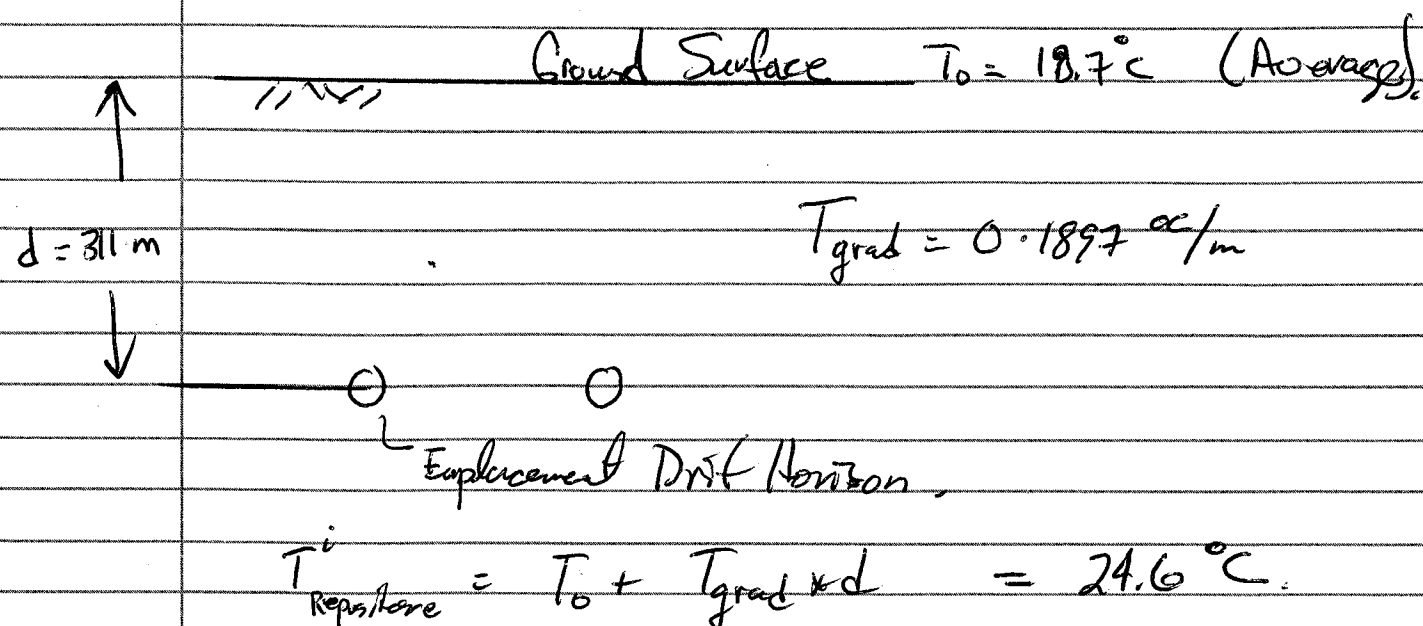 Ground Surface T₀ = 18.7°C (Average).
d = 311 m
T_grad = 0.1897 °C/m
Emplacement Drift Horizon.
T^i_Repository = T₀ + T_grad * d = 24.6 °C.